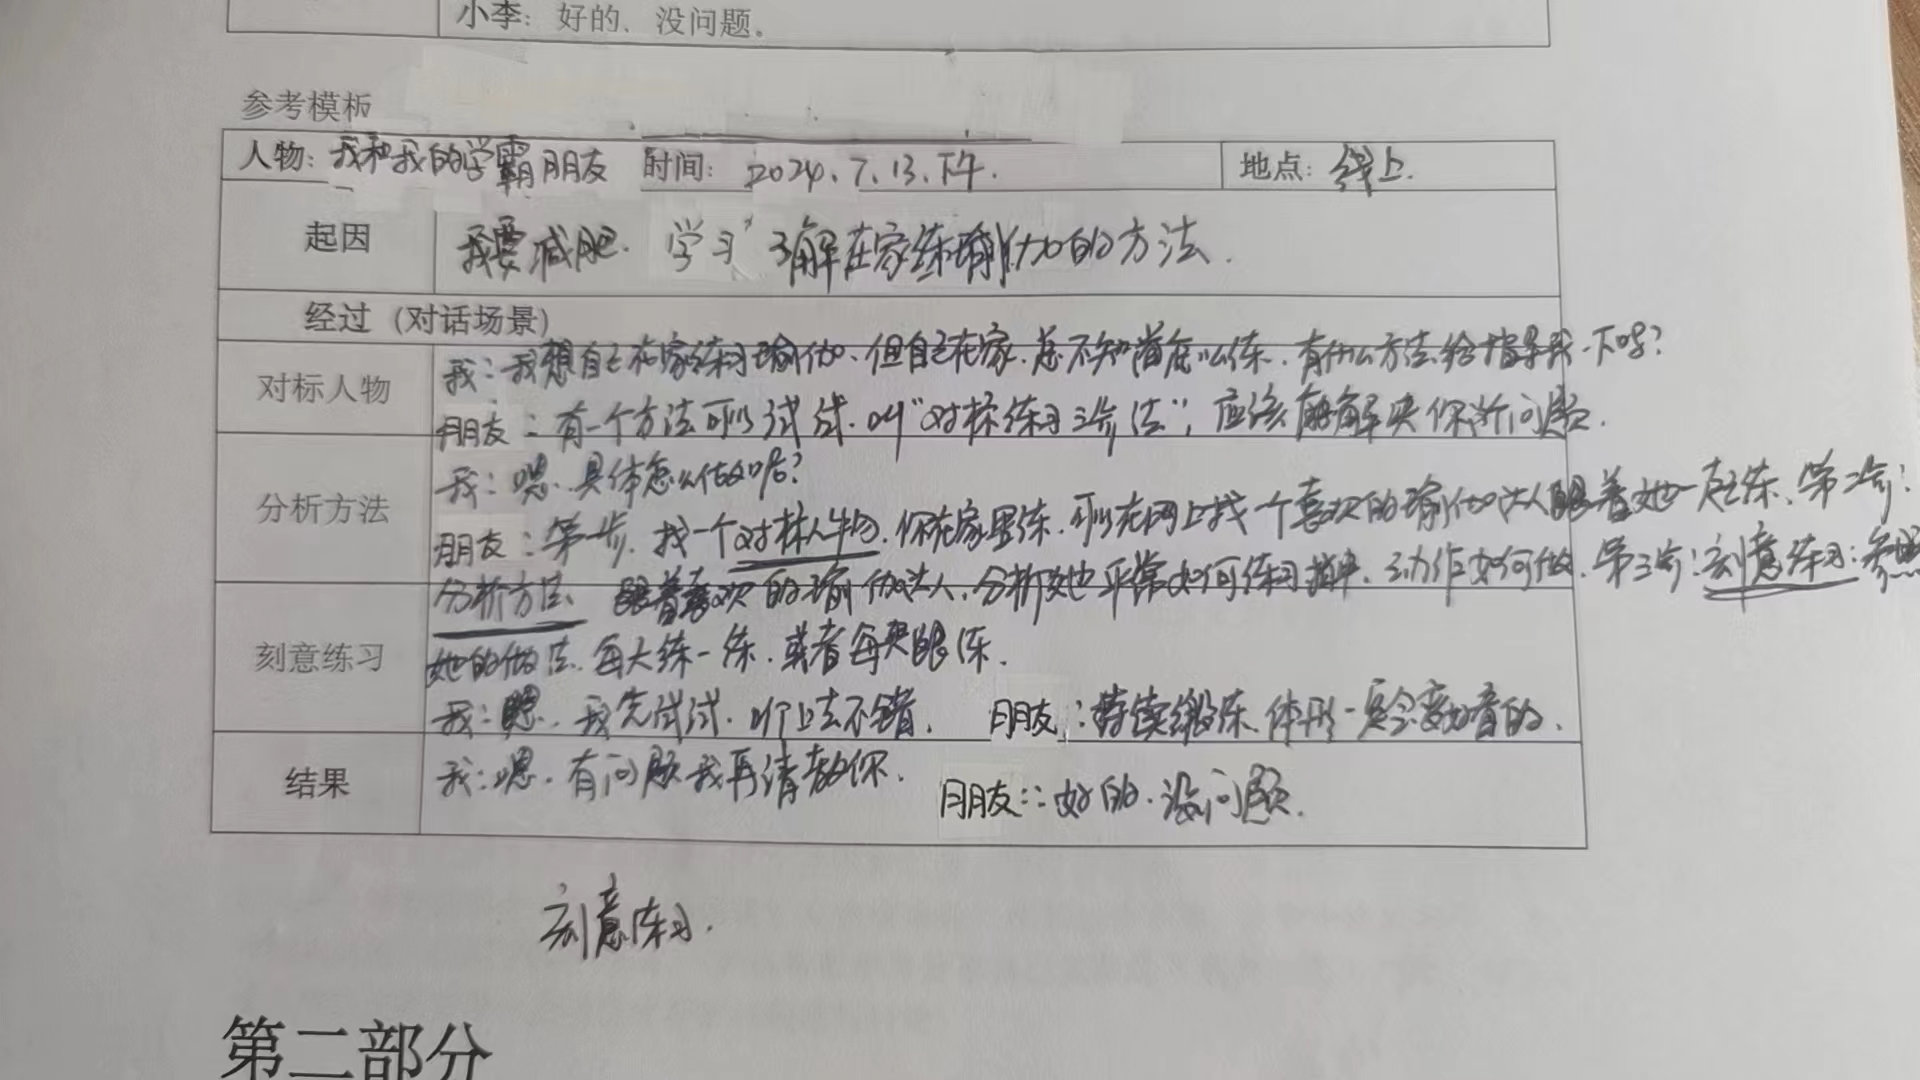 小李：好的、没问题。
参考模板
人物：我和我的学霸朋友 时间：2024.7.13.下午. 地点：线上.
起因 我要减肥. 学习了解在家练瑜伽的方法.
经过（对话场景）
我：我想自己在家练习瑜伽、但自己在家、总不知道怎么练、有什么方法给指导我一下吗？
对标人物
朋友：有一个方法可以试试、叫"对标练习三步法"，应该能解决你的问题.
我：嗯、具体怎么做呢？
分析方法
朋友：第一步、找一个对标人物、你在家里练、可以在网上找一个喜欢的瑜伽达人跟着她一起练、第二步：
分析方法 跟着喜欢的瑜伽达人、分析她平常如何练习、动作如何做、第三步：刻意练习：参照
刻意练习
她的做法、每天练一练、或者每天跟练.
我：嗯、我先试试、听上去不错. 朋友：持续锻炼、体形一定会变的.
结果 我：嗯、有问题我再请教你. 朋友：：好的、没问题.
刻意练习.
第二部分